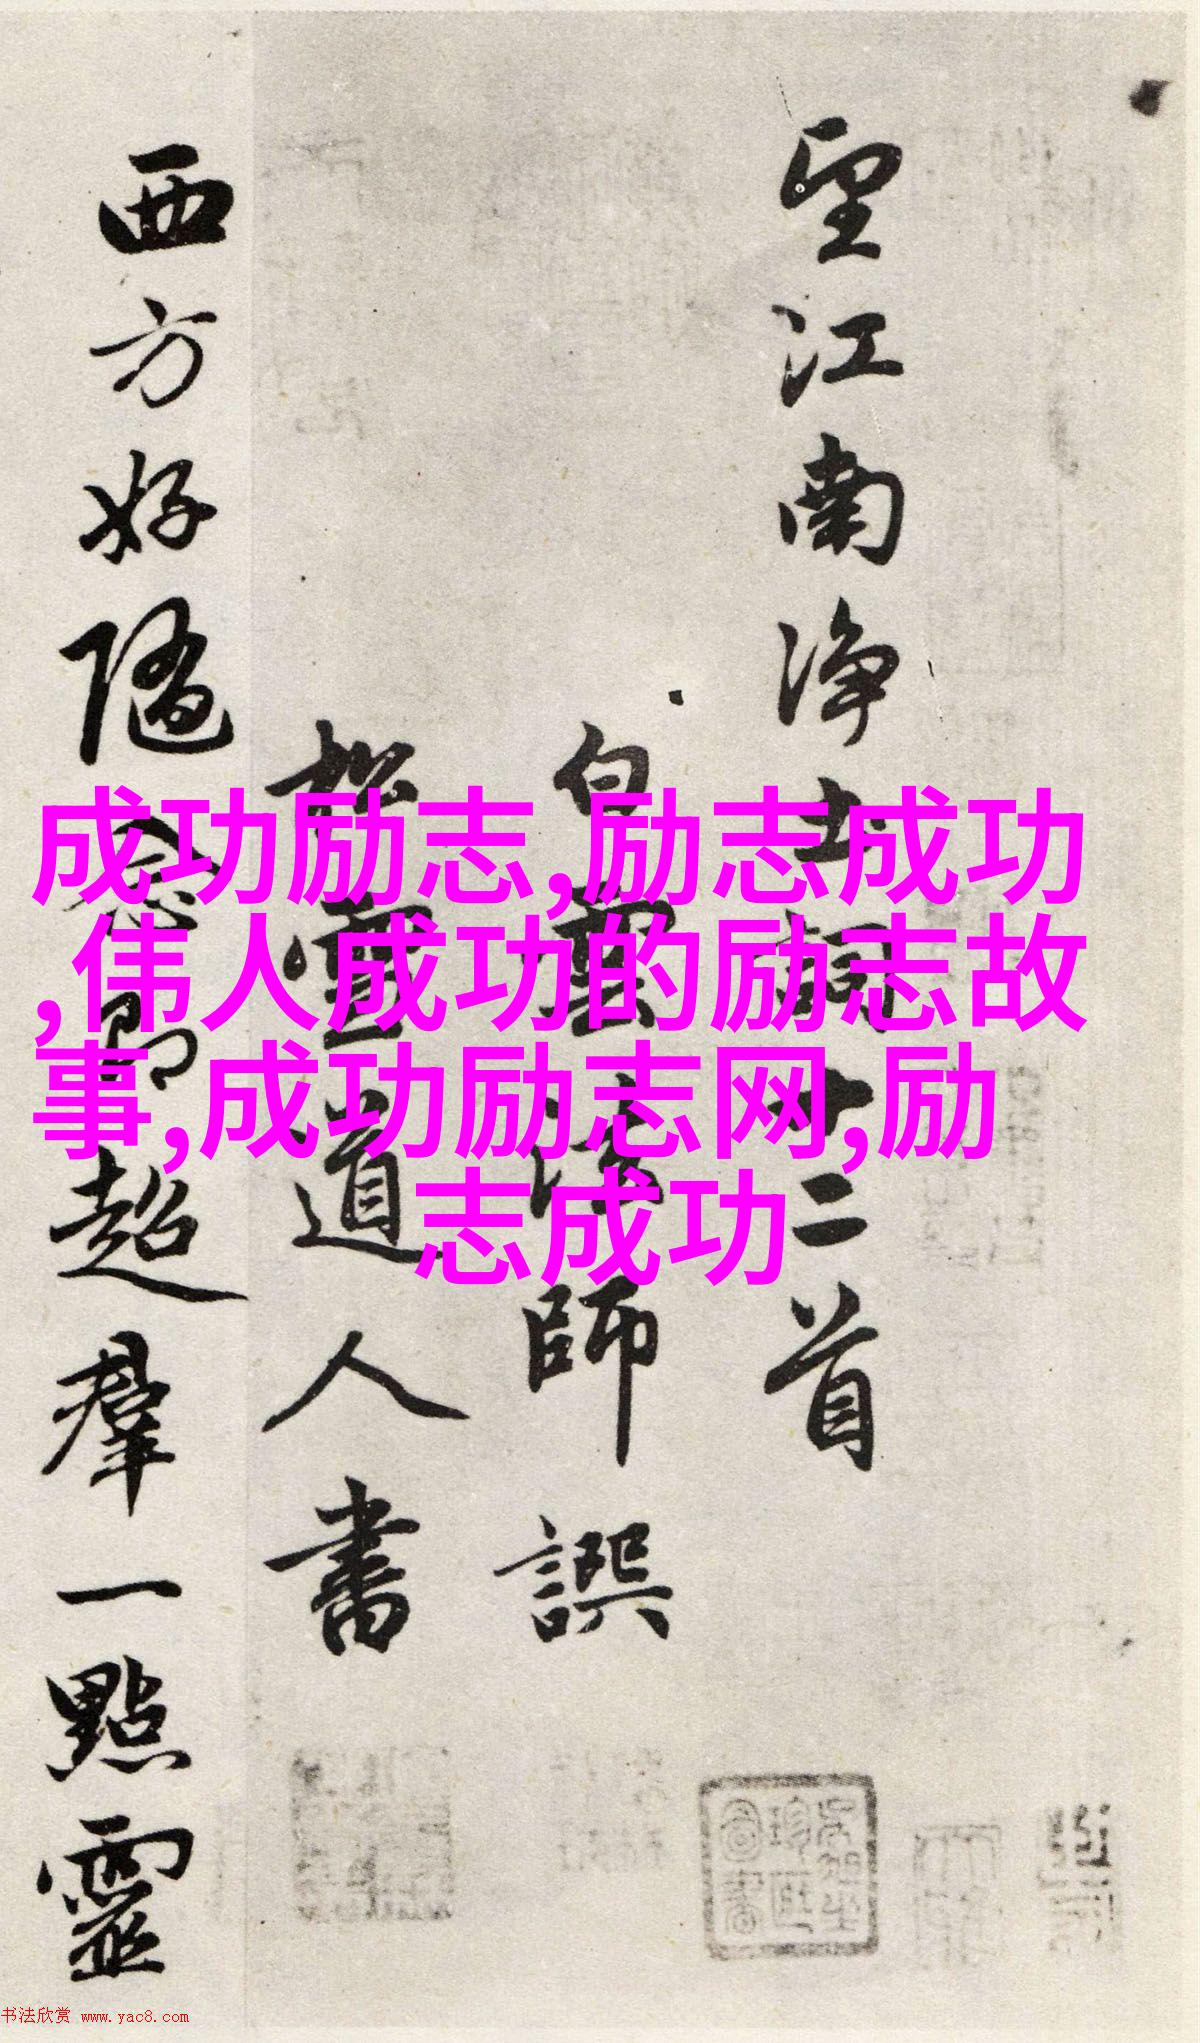 望江南净土詞十二首
白雲法師譔
松雪道人書
西方好隨念即超羣一點靈
成功励志,励志成功
,伟人成功的励志故
事,成功励志网,励
志成功
书法欣赏 www.yac8.com